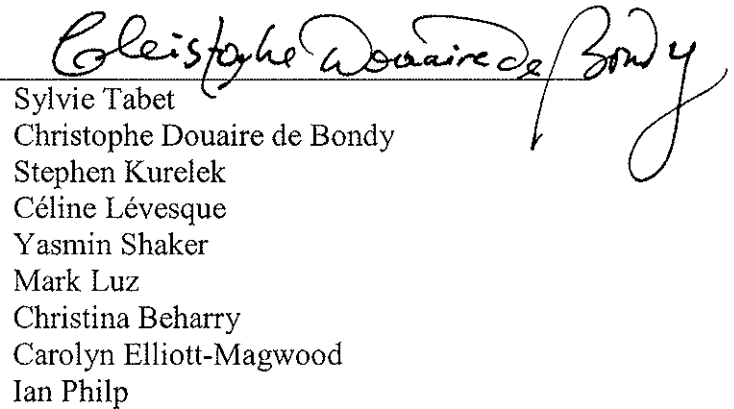 Christophe Douaire de Bondy
Sylvie Tabet
Christophe Douaire de Bondy
Stephen Kurelek
Céline Lévesque
Yasmin Shaker
Mark Luz
Christina Beharry
Carolyn Elliott-Magwood
Ian Philp